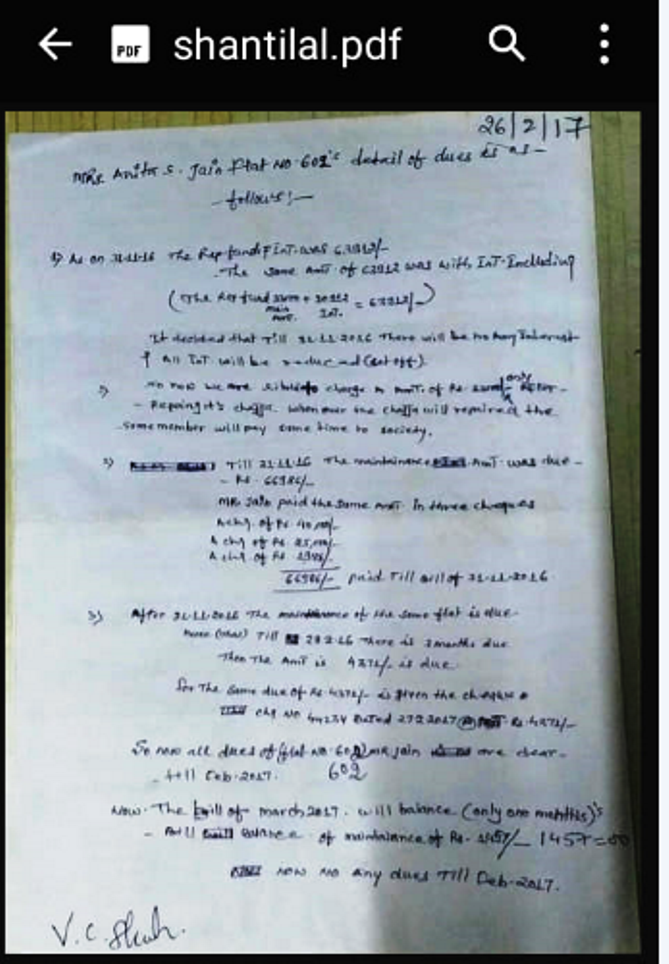 shantilal.pdf
26/2/17
Mrs. Anita S. Jain Flat No. 602's detail of dues is as -
- follows:-
1) As on 31-11-16 The Rep. fund
The same Amt of was with Int. Including
(The Rep fund + = )
main Int.
Amt.
It decided that Till 31-11-2016 There will be no Any Interest
All Int. will be reduced (set off).
No now we are to charge Amt. of Rs. only
- Repairing it's chajja. when ever the chajja will repaired the
same member will pay same time to society.
2) Till 31-11-16 The maintainance Amt was due -
- Rs. 66986/-
MR Jain paid the same Amt In three cheques
A chq. of Rs. 40,000/-
A chq of Rs. 25,000/-
A chq. of Rs. 1986/-
66986/- paid Till bill of 31-11-2016
3) After 31-11-2016 The maintainance of the same flat is due.
Till There is 3 months due
Then The Amt is 4371/- is due.
for The same due of Rs. 4371/- is given the cheque
chq No 44234 Dated 27 2 2017 Rs. 4371/-
So now all dues of flat no. 602 MR Jain are clear.
till Feb-2017. 602
Now. The bill of march 2017. will balance (only one months)'s
- Bill Balance of maintainance of Rs. 1457/- 1457=00
Now No any dues Till Feb-2017.
V.C. Shah.